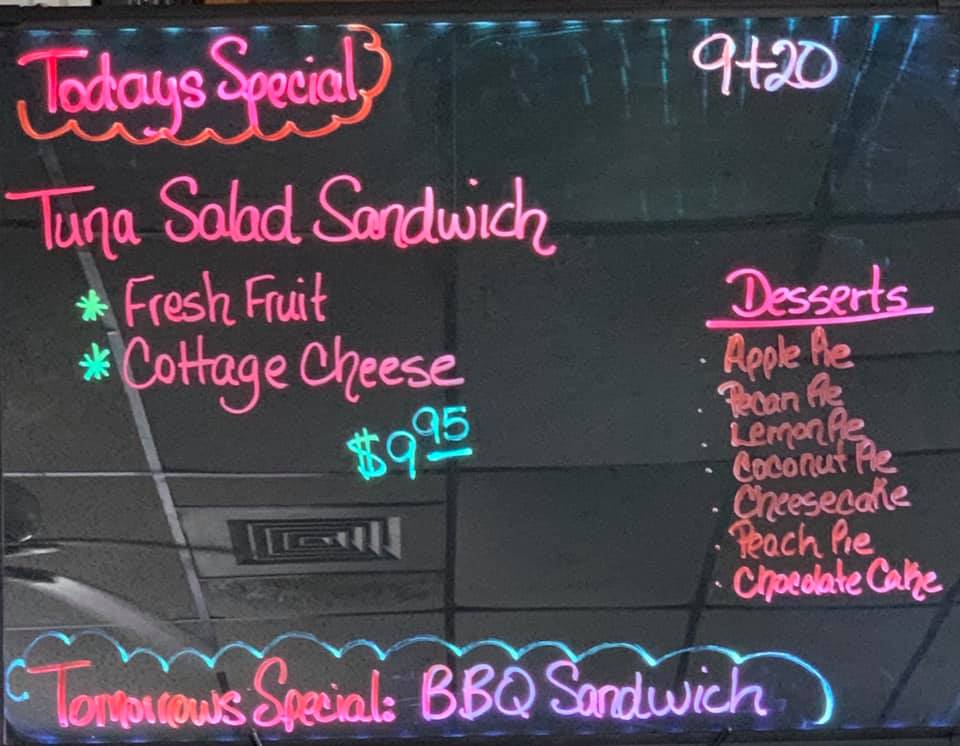 Todays Special
9+20
Tuna Salad Sandwich
* Fresh Fruit
* Cottage Cheese
$9.95
Desserts
· Apple Pie
· Pecan Pie
· Lemon Pie
· Coconut Pie
· Cheesecake
· Peach Pie
· Chocolate Cake
Tomorrows Special: BBQ Sandwich